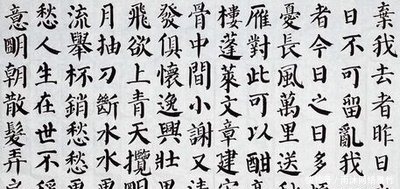 棄我去者昨日
日不可留亂我
者今日之日多
憂長風萬里送
雁對此可以酣
樓蓬萊文章建
骨中間小謝又清
發俱懷逸興壯
飛欲上青天攬
月抽刀斷水水
流舉杯銷愁愁
愁人生在世不
意明朝散髮弄